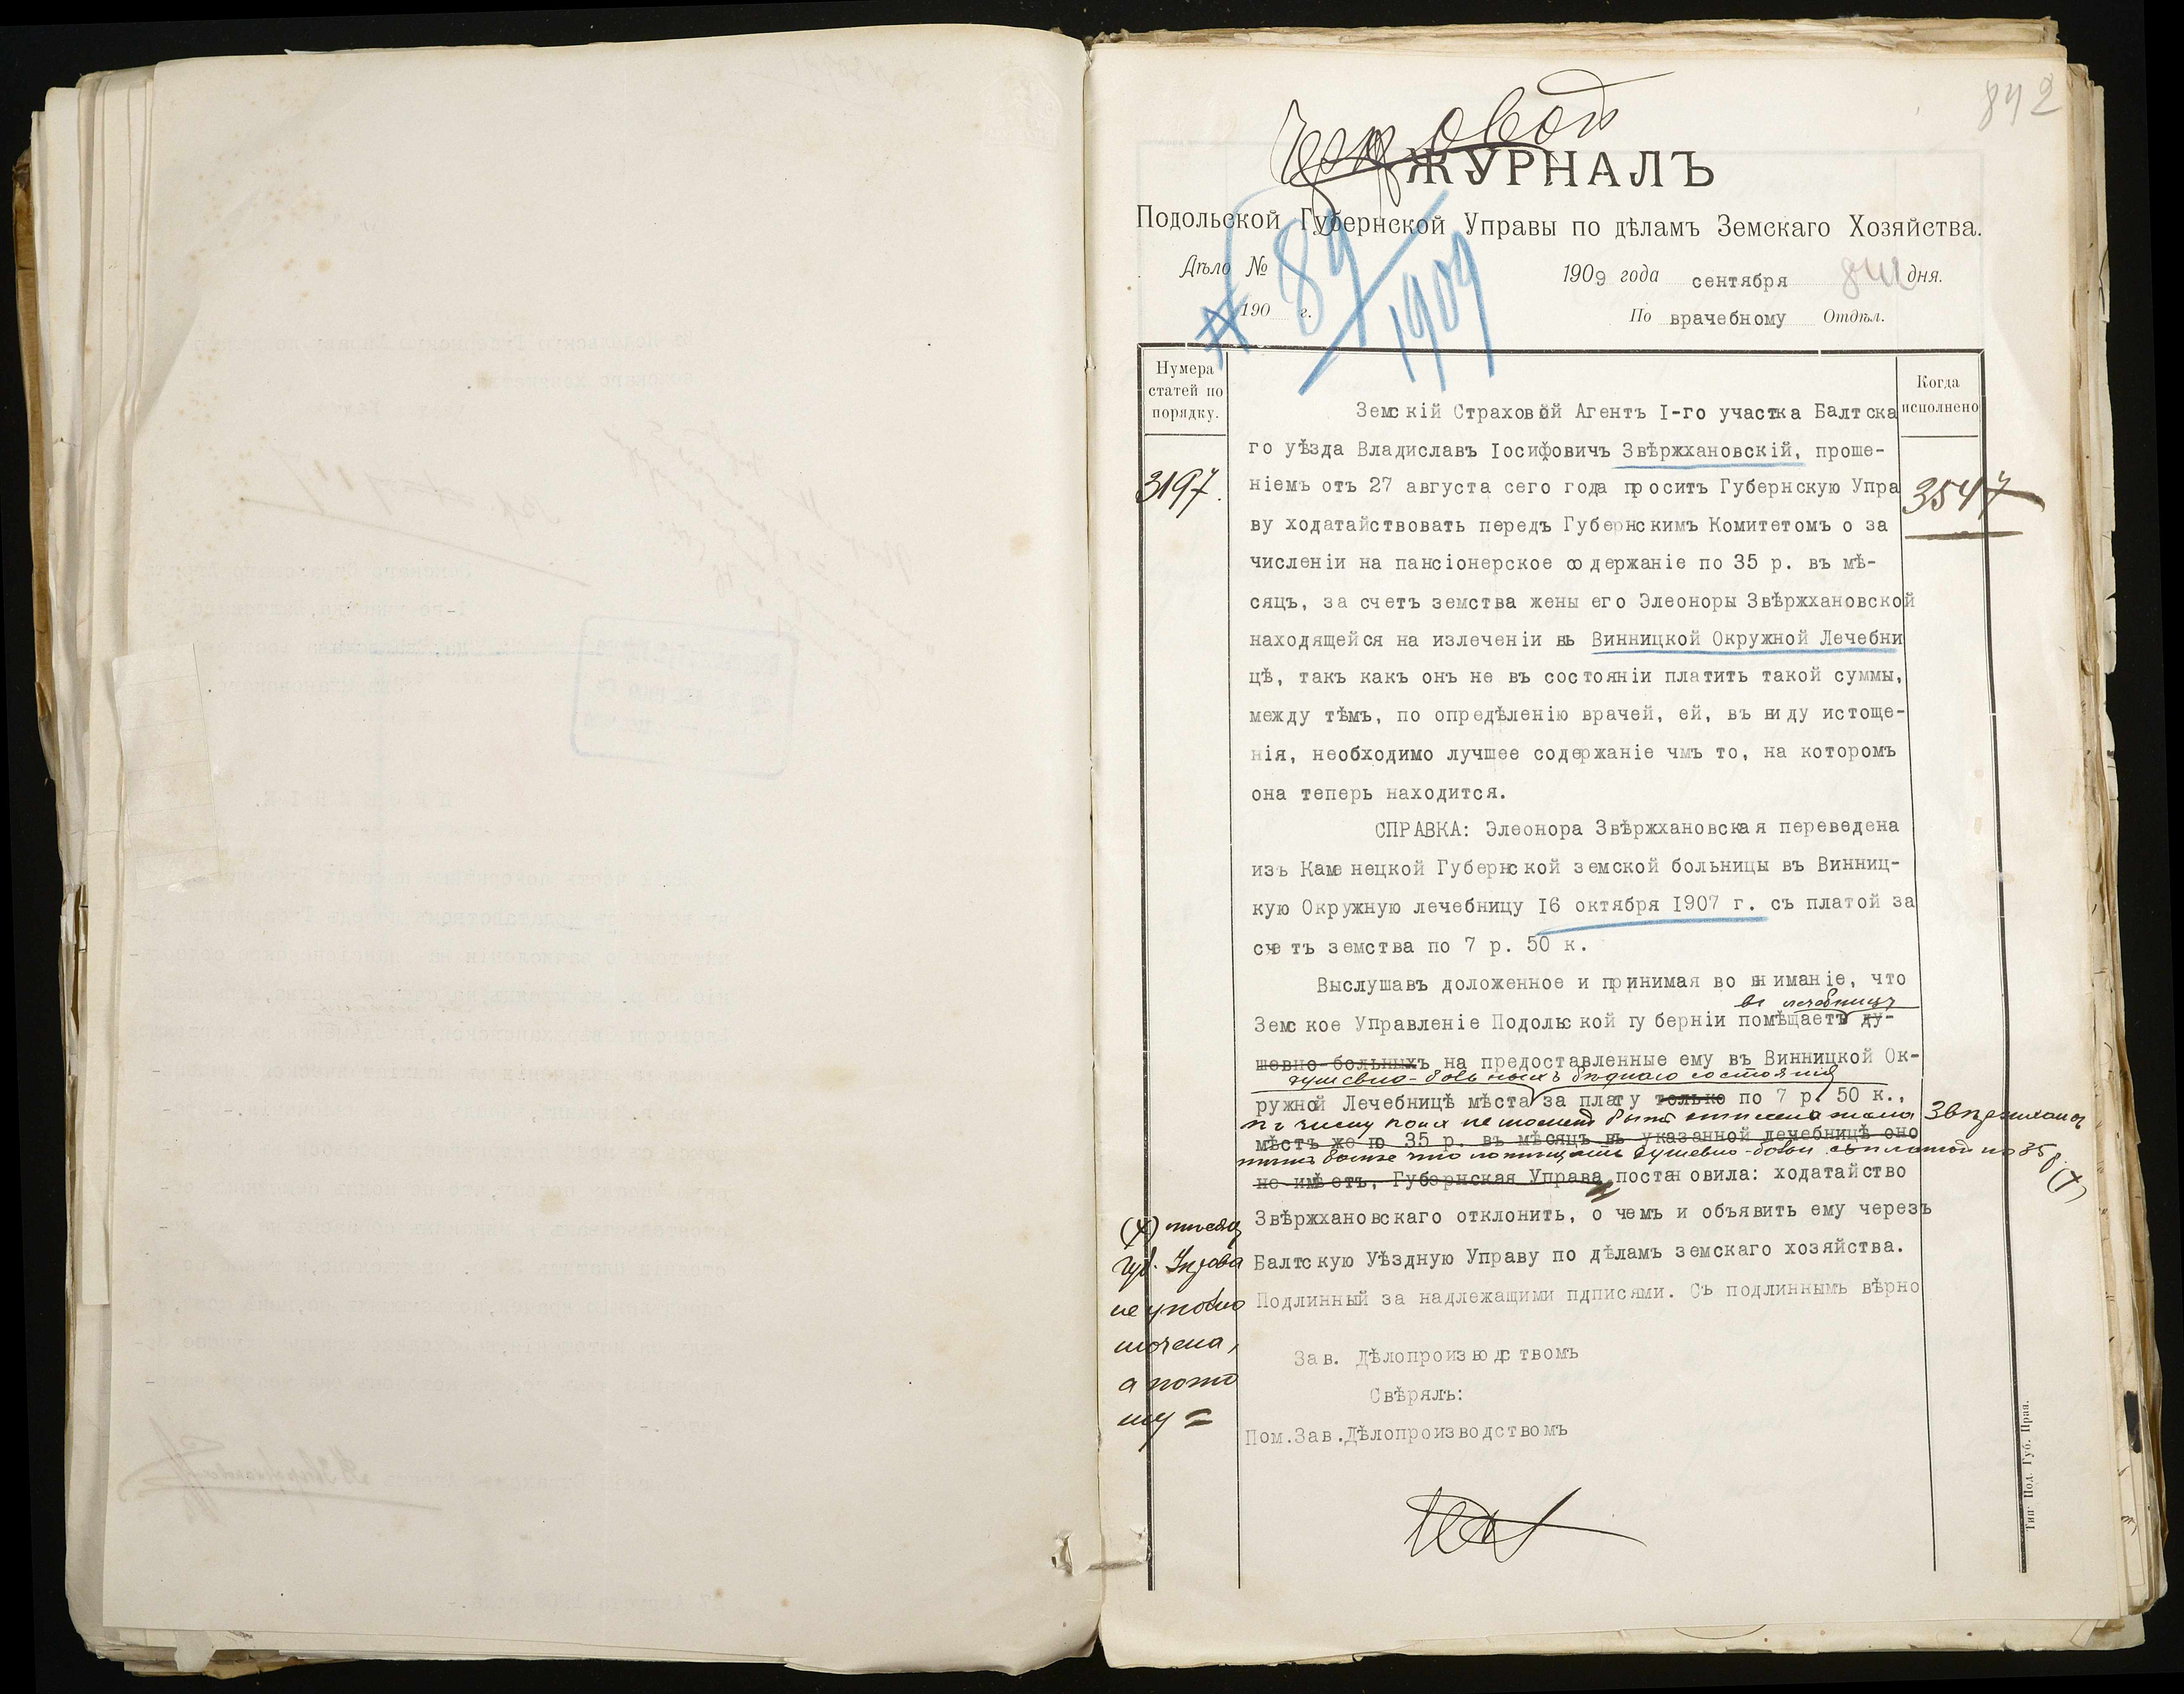 842
ЖУРНАЛЪ
Подольской Губернской Управы по дѣламъ Земскаго Хозяйства.
Дѣло № 89/1909
190 г.
1909 года сентября дня.
По врачебному Отдѣл.
Нумера статей по порядку.
Когда исполнено
3197.
3547
Земскій Страховой Агентъ I-го участка Балтска
го уѣзда Владиславъ Іосифовичъ Звѣржхановскій, проше-
ніемъ отъ 27 августа сего года проситъ Губернскую Упра
ву ходатайствовать передъ Губернскимъ Комитетомъ о за
численіи на пансіонерское содержаніе по 35 р. въ мѣ-
сяцъ, за счетъ земства жены его Элеоноры Звѣржхановской
находящейся на излеченіи въ Винницкой Окружной Лечебни
цѣ, такъ какъ онъ не въ состояніи платить такой суммы,
между тѣмъ, по опредѣленію врачей, ей, въ виду истоще-
нія, необходимо лучшее содержаніе чмъ то, на которомъ
она теперь находится.
СПРАВКА: Элеонора Звѣржхановская переведена
изъ Каменецкой Губернской земской больницы въ Винниц-
кую Окружную лечебницу 16 октября 1907 г. съ платой за
счетъ земства по 7 р. 50 к.
Выслушавъ доложенное и принимая во вниманіе, что
въ лечебницу
Земское Управленіе Подольской губерніи помѣщаетъ ду-
шевно-больныхъ на предоставленные ему въ Винницкой Ок-
душевно-больныхъ бѣднаго состоянія
ружной Лечебницѣ мѣста за плату только по 7 р. 50 к.,
къ числу коихъ не можетъ быть отнесена жена Звѣржханов
мѣстъ же по 35 р. въ мѣсяцъ въ указанной лечебницѣ оно
тѣмъ болѣе что помѣщать душевно-больн. съ платой по 35 р. (х)
не имѣетъ, Губернская Управа постановила: ходатайство
Звѣржхановскаго отклонить, о чемъ и объявить ему черезъ
Балтскую Уѣздную Управу по дѣламъ земскаго хозяйства.
Подлинный за надлежащими пдписями. Съ подлиннымъ вѣрно
(х) мѣсяц
Губ. Управа
не уполно
мочена,
а пото
му =
Зав. Дѣлопроизводствомъ
Свѣрялъ:
Пом.Зав.Дѣлопроизводствомъ
Тип. Под. Губ. Прав.